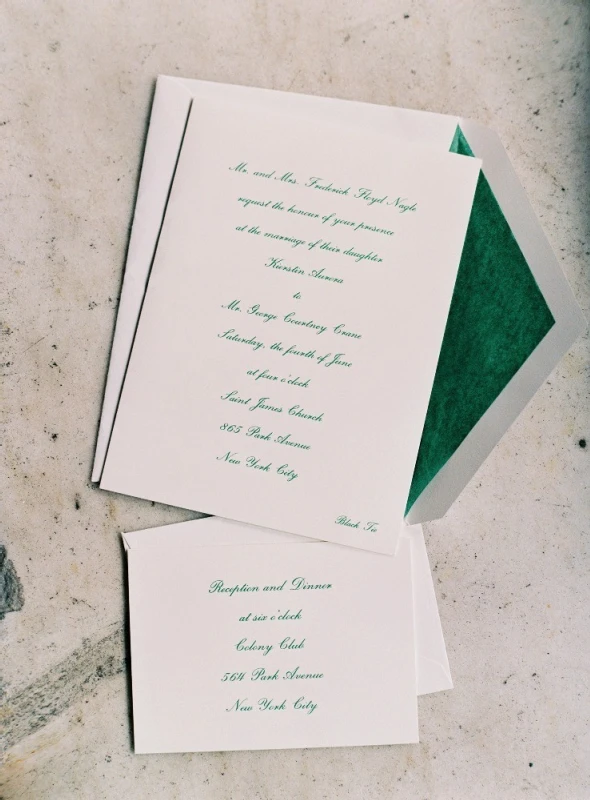 Mr. and Mrs. Frederick Floyd Nagle
request the honour of your presence
at the marriage of their daughter
Kierstin Aurora
to
Mr. George Courtney Crane
Saturday, the fourth of June
at four o'clock
Saint James Church
865 Park Avenue
New York City
Black Tie
Reception and Dinner
at six o'clock
Colony Club
564 Park Avenue
New York City